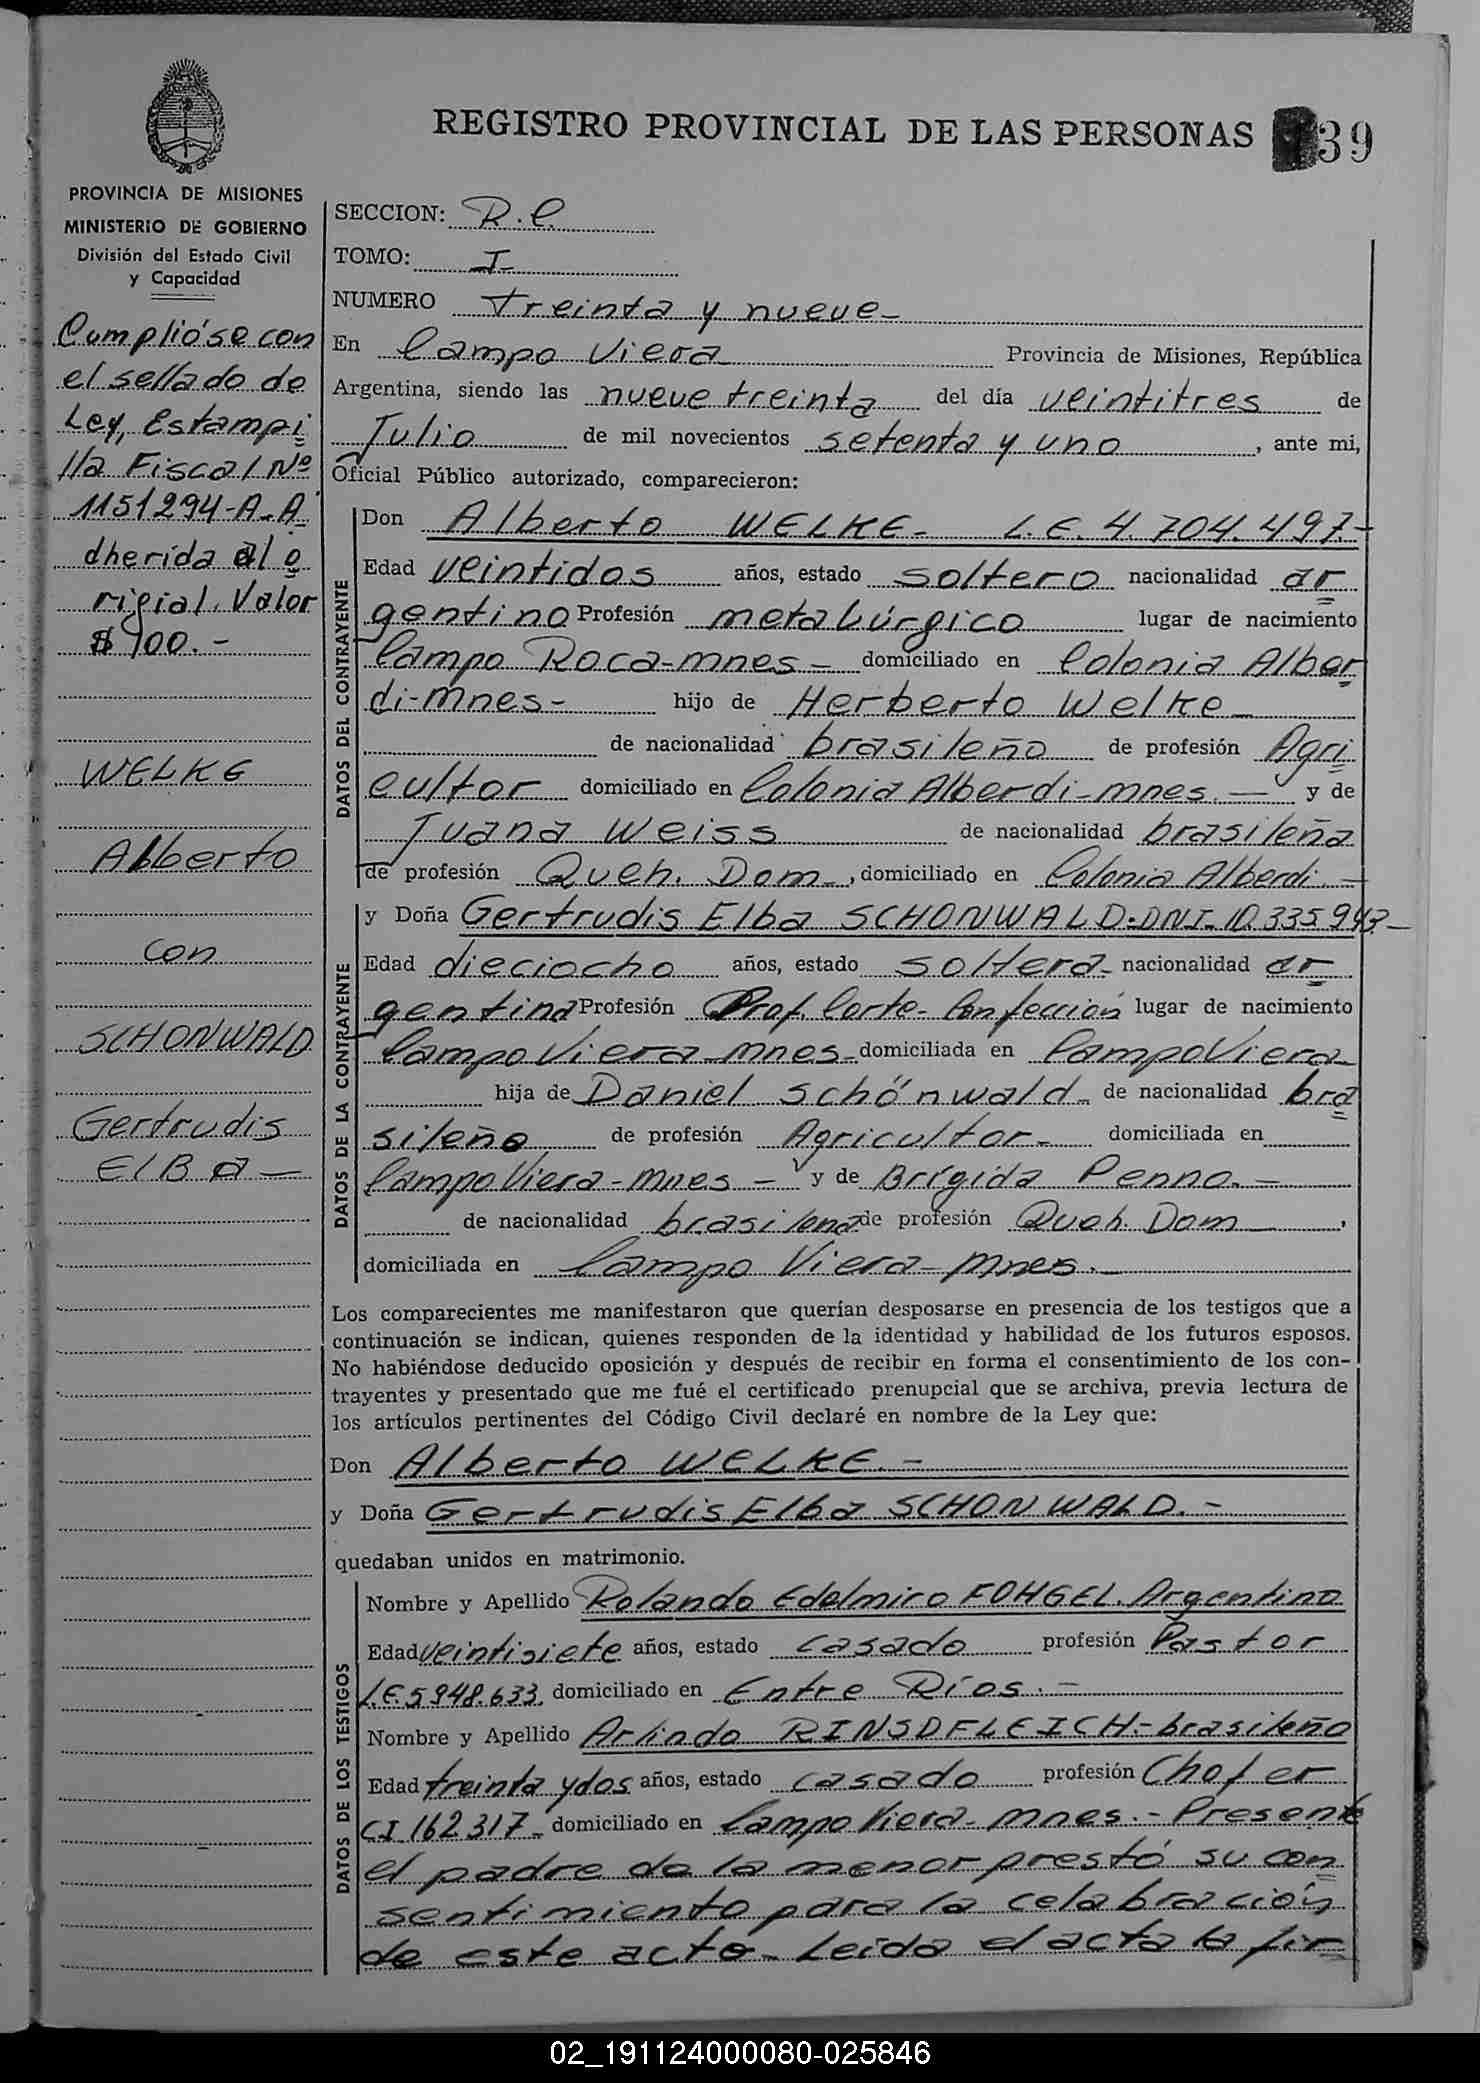 REGISTRO PROVINCIAL DE LAS PERSONAS 39
PROVINCIA DE MISIONES
MINISTERIO DE GOBIERNO
División del Estado Civil
y Capacidad
Cumplióse con
el sellado de
Ley, Estampi
lla Fiscal Nº
1151294-A-A
dherida al o
rigial. Valor
$ 100.-
WELKE
Alberto
con
SCHONWALD
Gertrudis
ELBA—
SECCION: R.C.
TOMO: I
NUMERO Treinta y nueve-
En Campo Viera Provincia de Misiones, República
Argentina, siendo las nueve treinta del día veintitres de
Julio de mil novecientos setenta y uno, ante mi,
Oficial Público autorizado, comparecieron:
DATOS DEL CONTRAYENTE
Don Alberto WELKE- L.E. 4.704.497.-
Edad veintidos años, estado soltero nacionalidad ar
gentino Profesión metalúrgico lugar de nacimiento
Campo Roca-mnes- domiciliado en Colonia Alber
di-mnes- hijo de Herberto Welke-
de nacionalidad brasileño de profesión Agri
cultor domiciliado en Colonia Alberdi-mnes.— y de
Juana Weiss de nacionalidad brasileña
de profesión Queh. Dom-, domiciliado en Colonia Alberdi.—
DATOS DE LA CONTRAYENTE
y Doña Gertrudis Elba SCHONWALD-DNI-10.335.943-
Edad dieciocho años, estado soltera- nacionalidad ar
gentina Profesión Prof. Corte-Confección lugar de nacimiento
Campo Viera-mnes- domiciliada en Campo Viera
hija de Daniel Schönwald- de nacionalidad bra
sileño de profesión Agricultor- domiciliada en
Campo Viera-mnes- y de Brígida Penno.-
de nacionalidad brasilena de profesión Queh. Dom ,
domiciliada en Campo Viera-mnes.-
Los comparecientes me manifestaron que querían desposarse en presencia de los testigos que a
continuación se indican, quienes responden de la identidad y habilidad de los futuros esposos.
No habiéndose deducido oposición y después de recibir en forma el consentimiento de los con-
trayentes y presentado que me fué el certificado prenupcial que se archiva, previa lectura de
los artículos pertinentes del Código Civil declaré en nombre de la Ley que:
Don Alberto WELKE.-
y Doña Gertrudis Elba SCHONWALD.-
quedaban unidos en matrimonio.
DATOS DE LOS TESTIGOS
Nombre y Apellido Rolando Edelmiro FOHGEL. Argentino
Edad veintisiete años, estado casado profesión Pastor
L.E. 5948.633, domiciliado en Entre Ríos.-
Nombre y Apellido Arlindo RINSDFLEICH-brasileño
Edad treinta y dos años, estado casado profesión Chofer
CI 162.317- domiciliado en Campo Viera-mnes.-Presente
el padre de la menor prestó su con
sentimiento para la celabración
de este acto- Leida el acta la fir
02_191124000080-025846